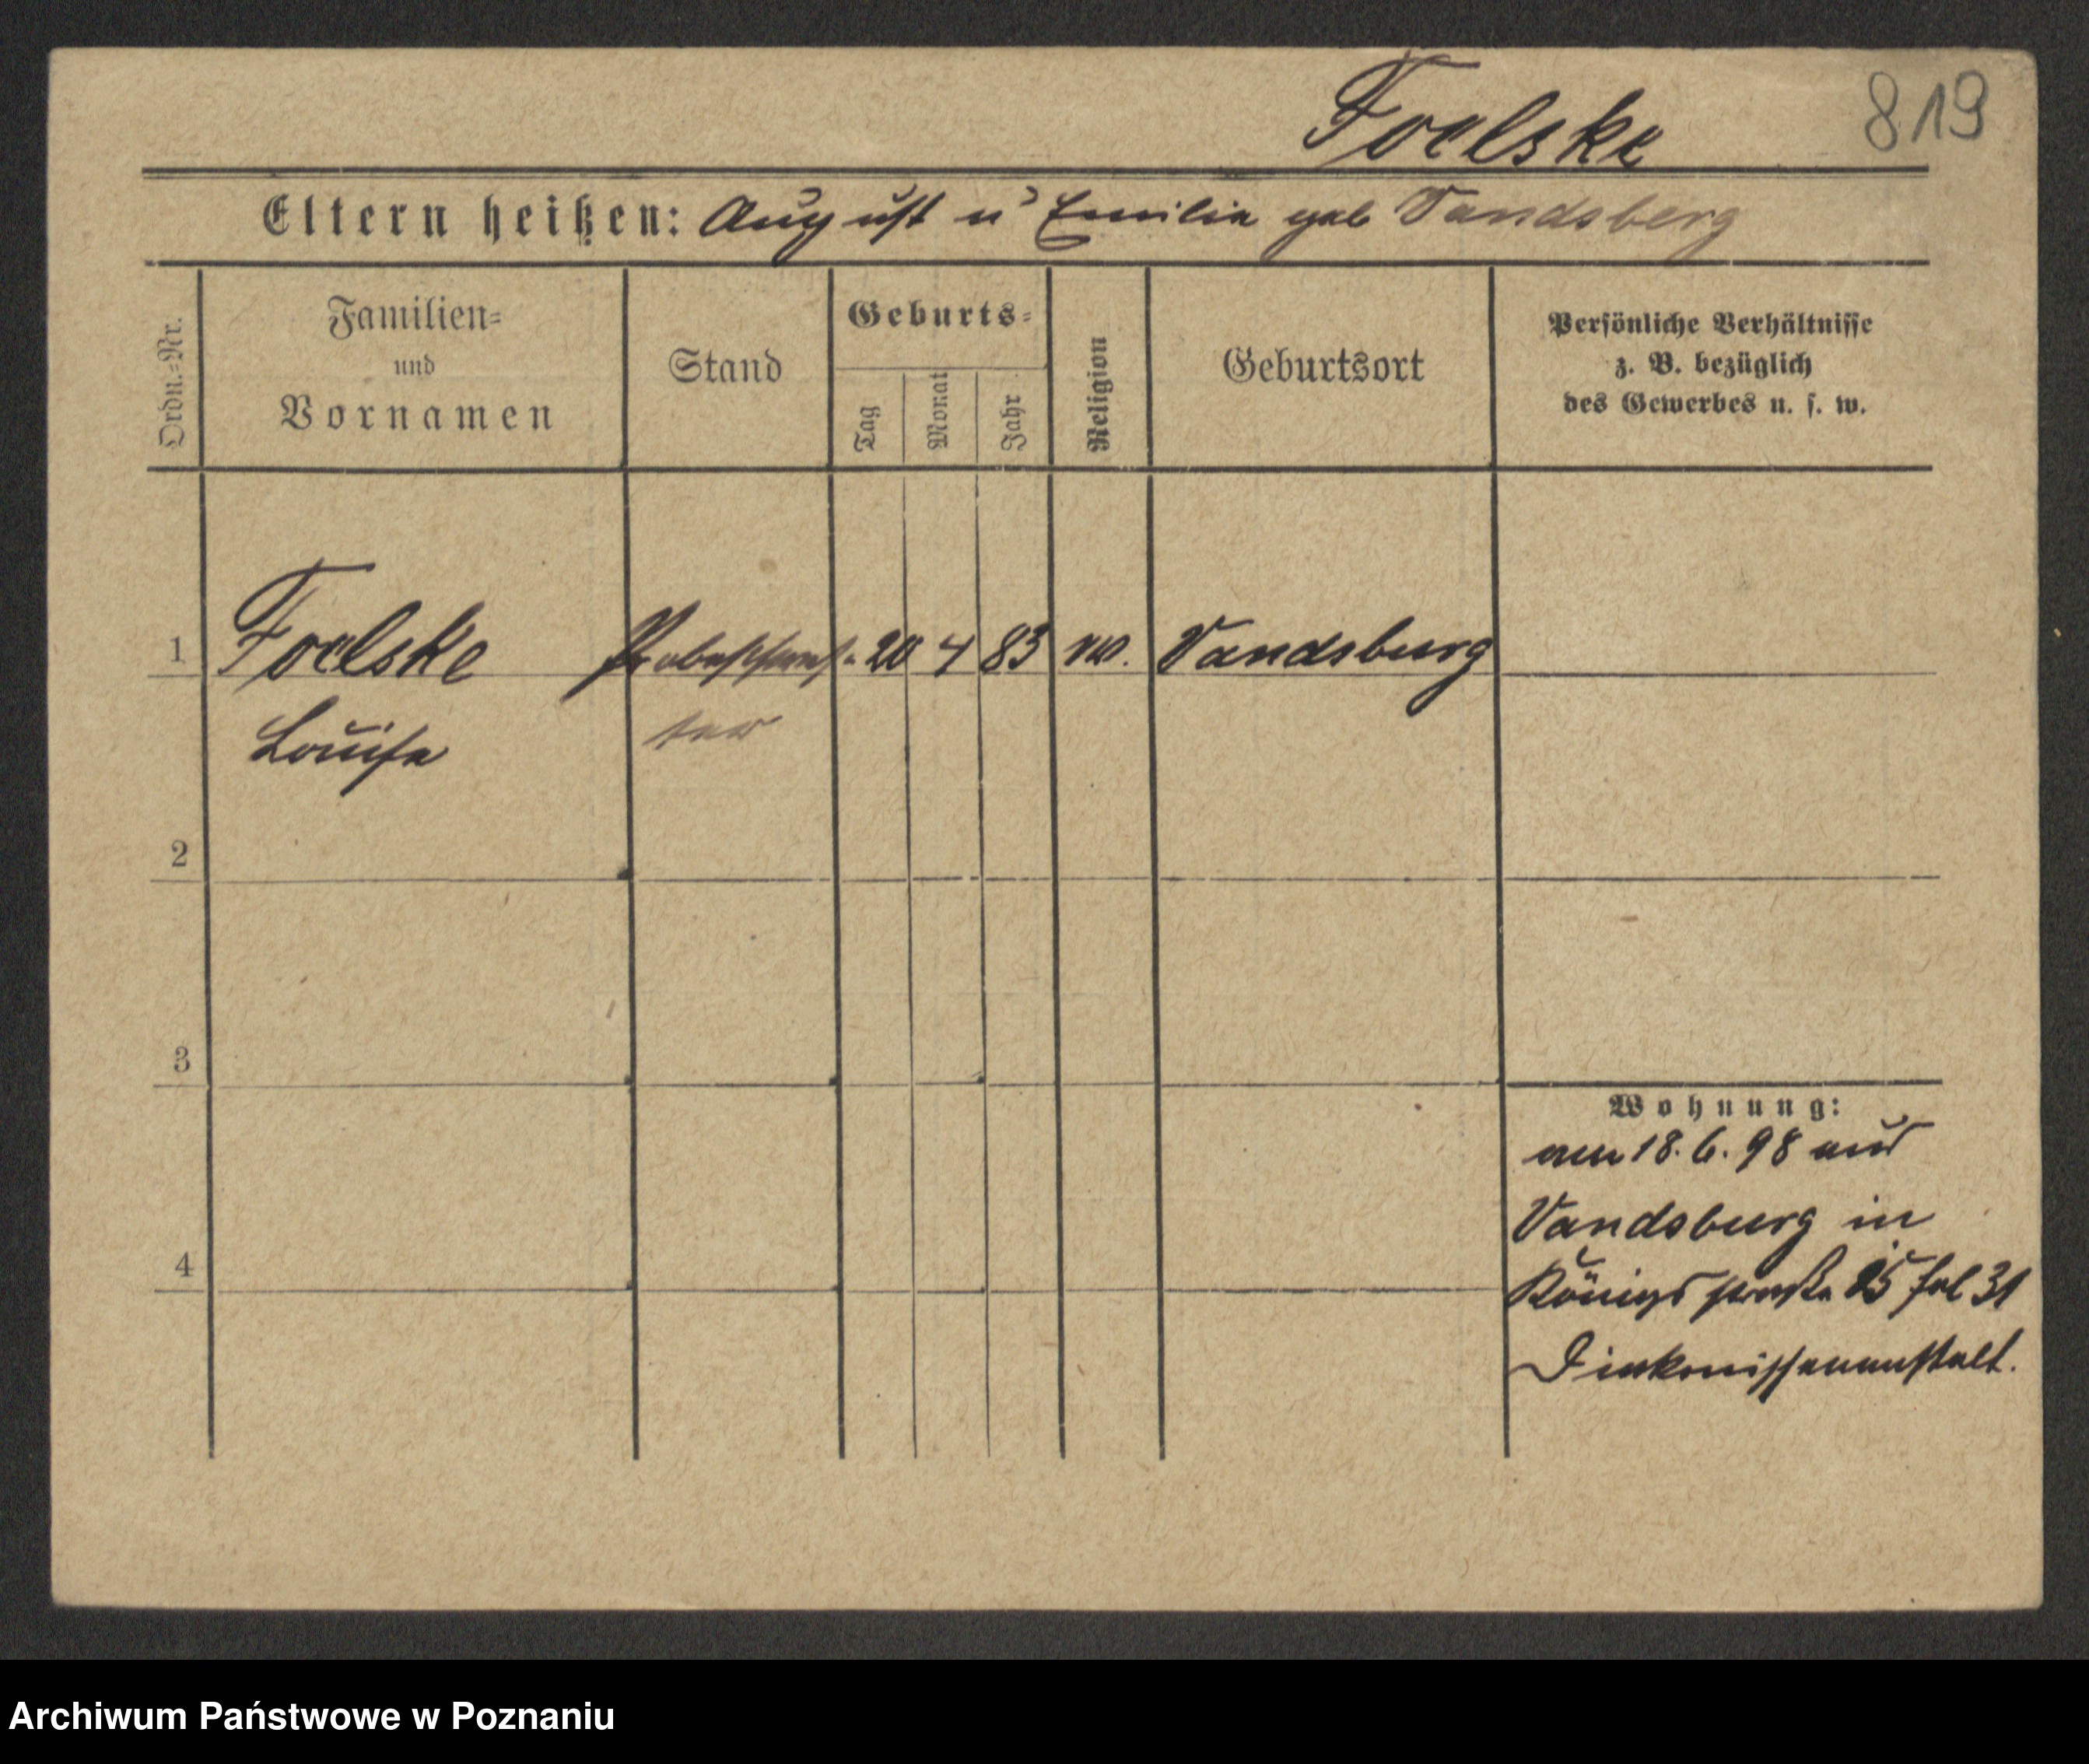 Foelske 819
Eltern heißen: August u Emilie geb Vandsberg
Ordn.-Nr.
Familien=
und
Vornamen
Stand
Geburts=
Tag
Monat
Jahr
Religion
Geburtsort
Persönliche Verhältnisse
z. B. bezüglich
des Gewerbes u. s. w.
1 Foelske Probeschwes- 20 4 83 ev. Vandsburg
Louise ter
2
3
4
Wohnung:
am 18. 6. 98 aus
Vandsburg in
Königsstraße 25 fol 31
Diakonissenanstalt.
Archiwum Państwowe w Poznaniu